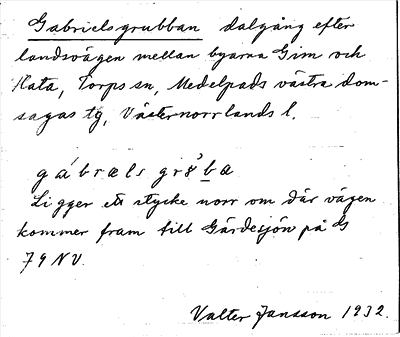 Gabrielsgrubban dalgång efter
landsvägen mellan byarna Gim och
Hata, Torps sn, Medelpads västra dom-
sagas tg, Västernorrlands l.
gábræls gr8̀bæ
Ligger ett stycke norr om där vägen
kommer fram till Gärdesjön på
79 NV.
Valter Jansson 1932.